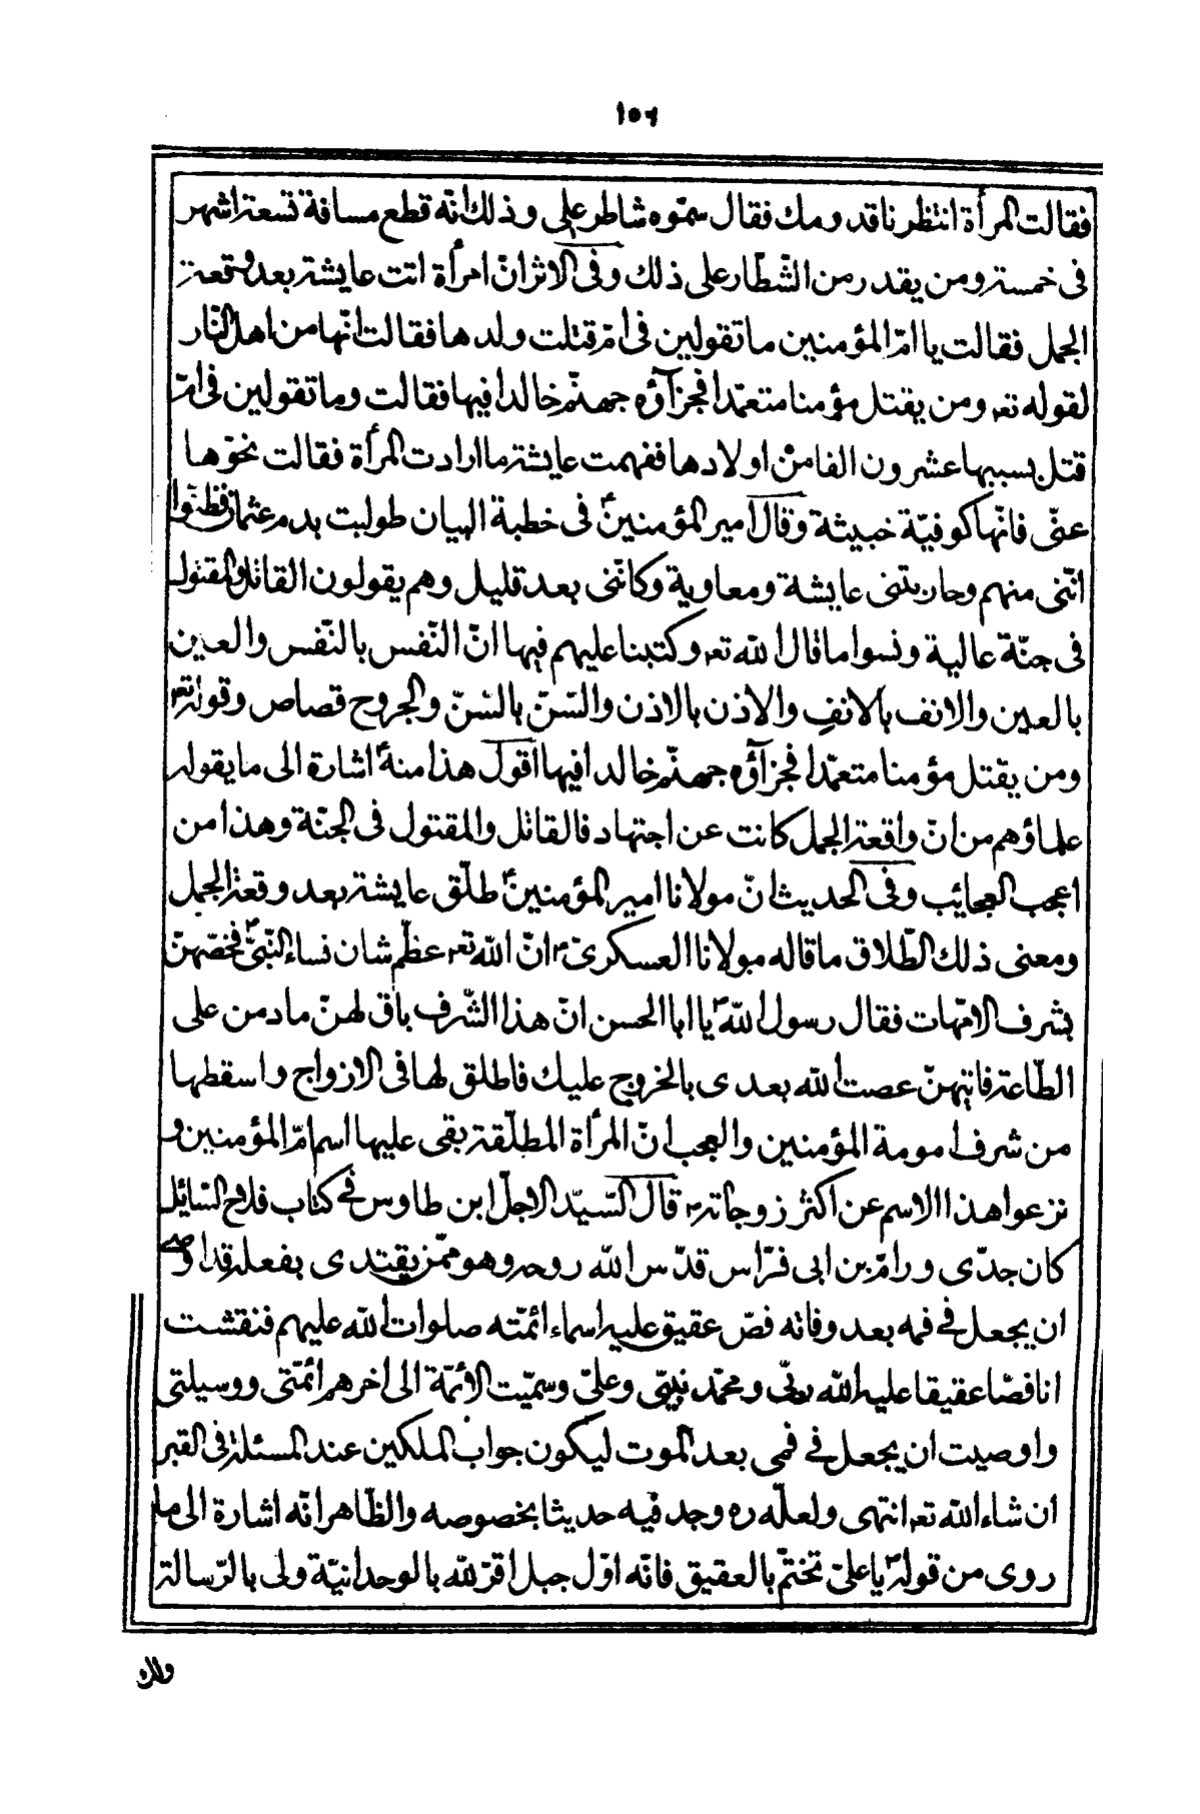 ١٥٦
فقالت المرأة انتظرنا قدومك فقال سمّوه شاطر علي وذلك انّه قطع مسافة تسعة اشهر
فى خمسة ومن يقدر من الشّطّار على ذلك وفى الاثر انّ امرأة اتت عايشة بعد وقعة
الجمل فقالت يا امّ المؤمنين ما تقولين فى امّ قتلت ولدها فقالت انّها من اهل النّار
لقوله تعه ومن يقتل مؤمنا متعمّدا فجزآؤه جهنّم خالدا فيها فقالت وما تقولين فى امّ
قتل بسببها عشرون الفا من اولادها ففهمت عايشة ما ارادت المرأة فقالت نحّوها
عنّى فانّها كوفيّة خبيثة وقال امير المؤمنينؑ فى خطبة البيان طولبت بدم عثمان فظنّوا
انّنى منهم وحاربتنى عايشة ومعاوية وكانّنى بعد قليل وهم يقولون القاتل والمقتول
فى جنّة عالية ونسوا ما قال اللّه تعه وكتبنا عليهم فيها انّ النّفس بالنّفس والعين
بالعين والانف بالانف والاذن بالاذن والسّنّ بالسّنّ والجروح قصاص وقوله تعه
ومن يقتل مؤمنا متعمّدا فجزآؤه جهنّم خالدا فيها اقول هذا منهؑ اشارة الى ما يقوله
علماؤهم من انّ واقعة الجمل كانت عن اجتهاد فالقاتل والمقتول فى الجنّة وهذا من
اعجب العجايب وفى الحديث انّ مولانا امير المؤمنينؑ طلّق عايشة بعد وقعة الجمل
ومعنى ذلك الطّلاق ما قاله مولانا العسكرىؑ انّ اللّه تعه عظّم شان نساء النّبىّؐ فخصّهنّ
بشرف الامّهات فقال رسول اللّهؐ يا ابا الحسن انّ هذا الشّرف باق لهنّ ما دمن على
الطّاعة فايّتهنّ عصت اللّه بعدى بالخروج عليك فاطلق لها فى الازواج واسقطها
من شرف امومة المؤمنين والعجب انّ المرأة المطلّقة بقى عليها اسم امّ المؤمنين و
نزعوا هذا الاسم عن اكثر زوجاتهؐ قال السّيّد الاجلّ ابن طاوس فى كتاب فلاح السّايل
كان جدّى ورامّ بن ابى فرّاس قدّس اللّه روحه وهو ممّن يقتدى بفعله قد اوصى
ان يجعل فى فمه بعد وفاته فصّ عقيق عليه اسماء ائمّته صلوات اللّه عليهم فنقشت
انا فصّا عقيقا عليه اللّه ربّى ومحمّد نبيّى وعلىّ وسمّيت الأئمّة الى اخرهم ائمّتى ووسيلتى
واوصيت ان يجعل فى فمى بعد الموت ليكون جواب الملكين عند المسئلة فى القبر
ان شاء اللّه تعه انتهى ولعلّه ره وجد فيه حديثا بخصوصه والظّاهر انّه اشارة الى ما
روى من قولهؐ يا علىّ تختّم بالعقيق فانّه اوّل جبل اقرّ للّه بالوحدانيّة ولى بالرّسالة
ولك